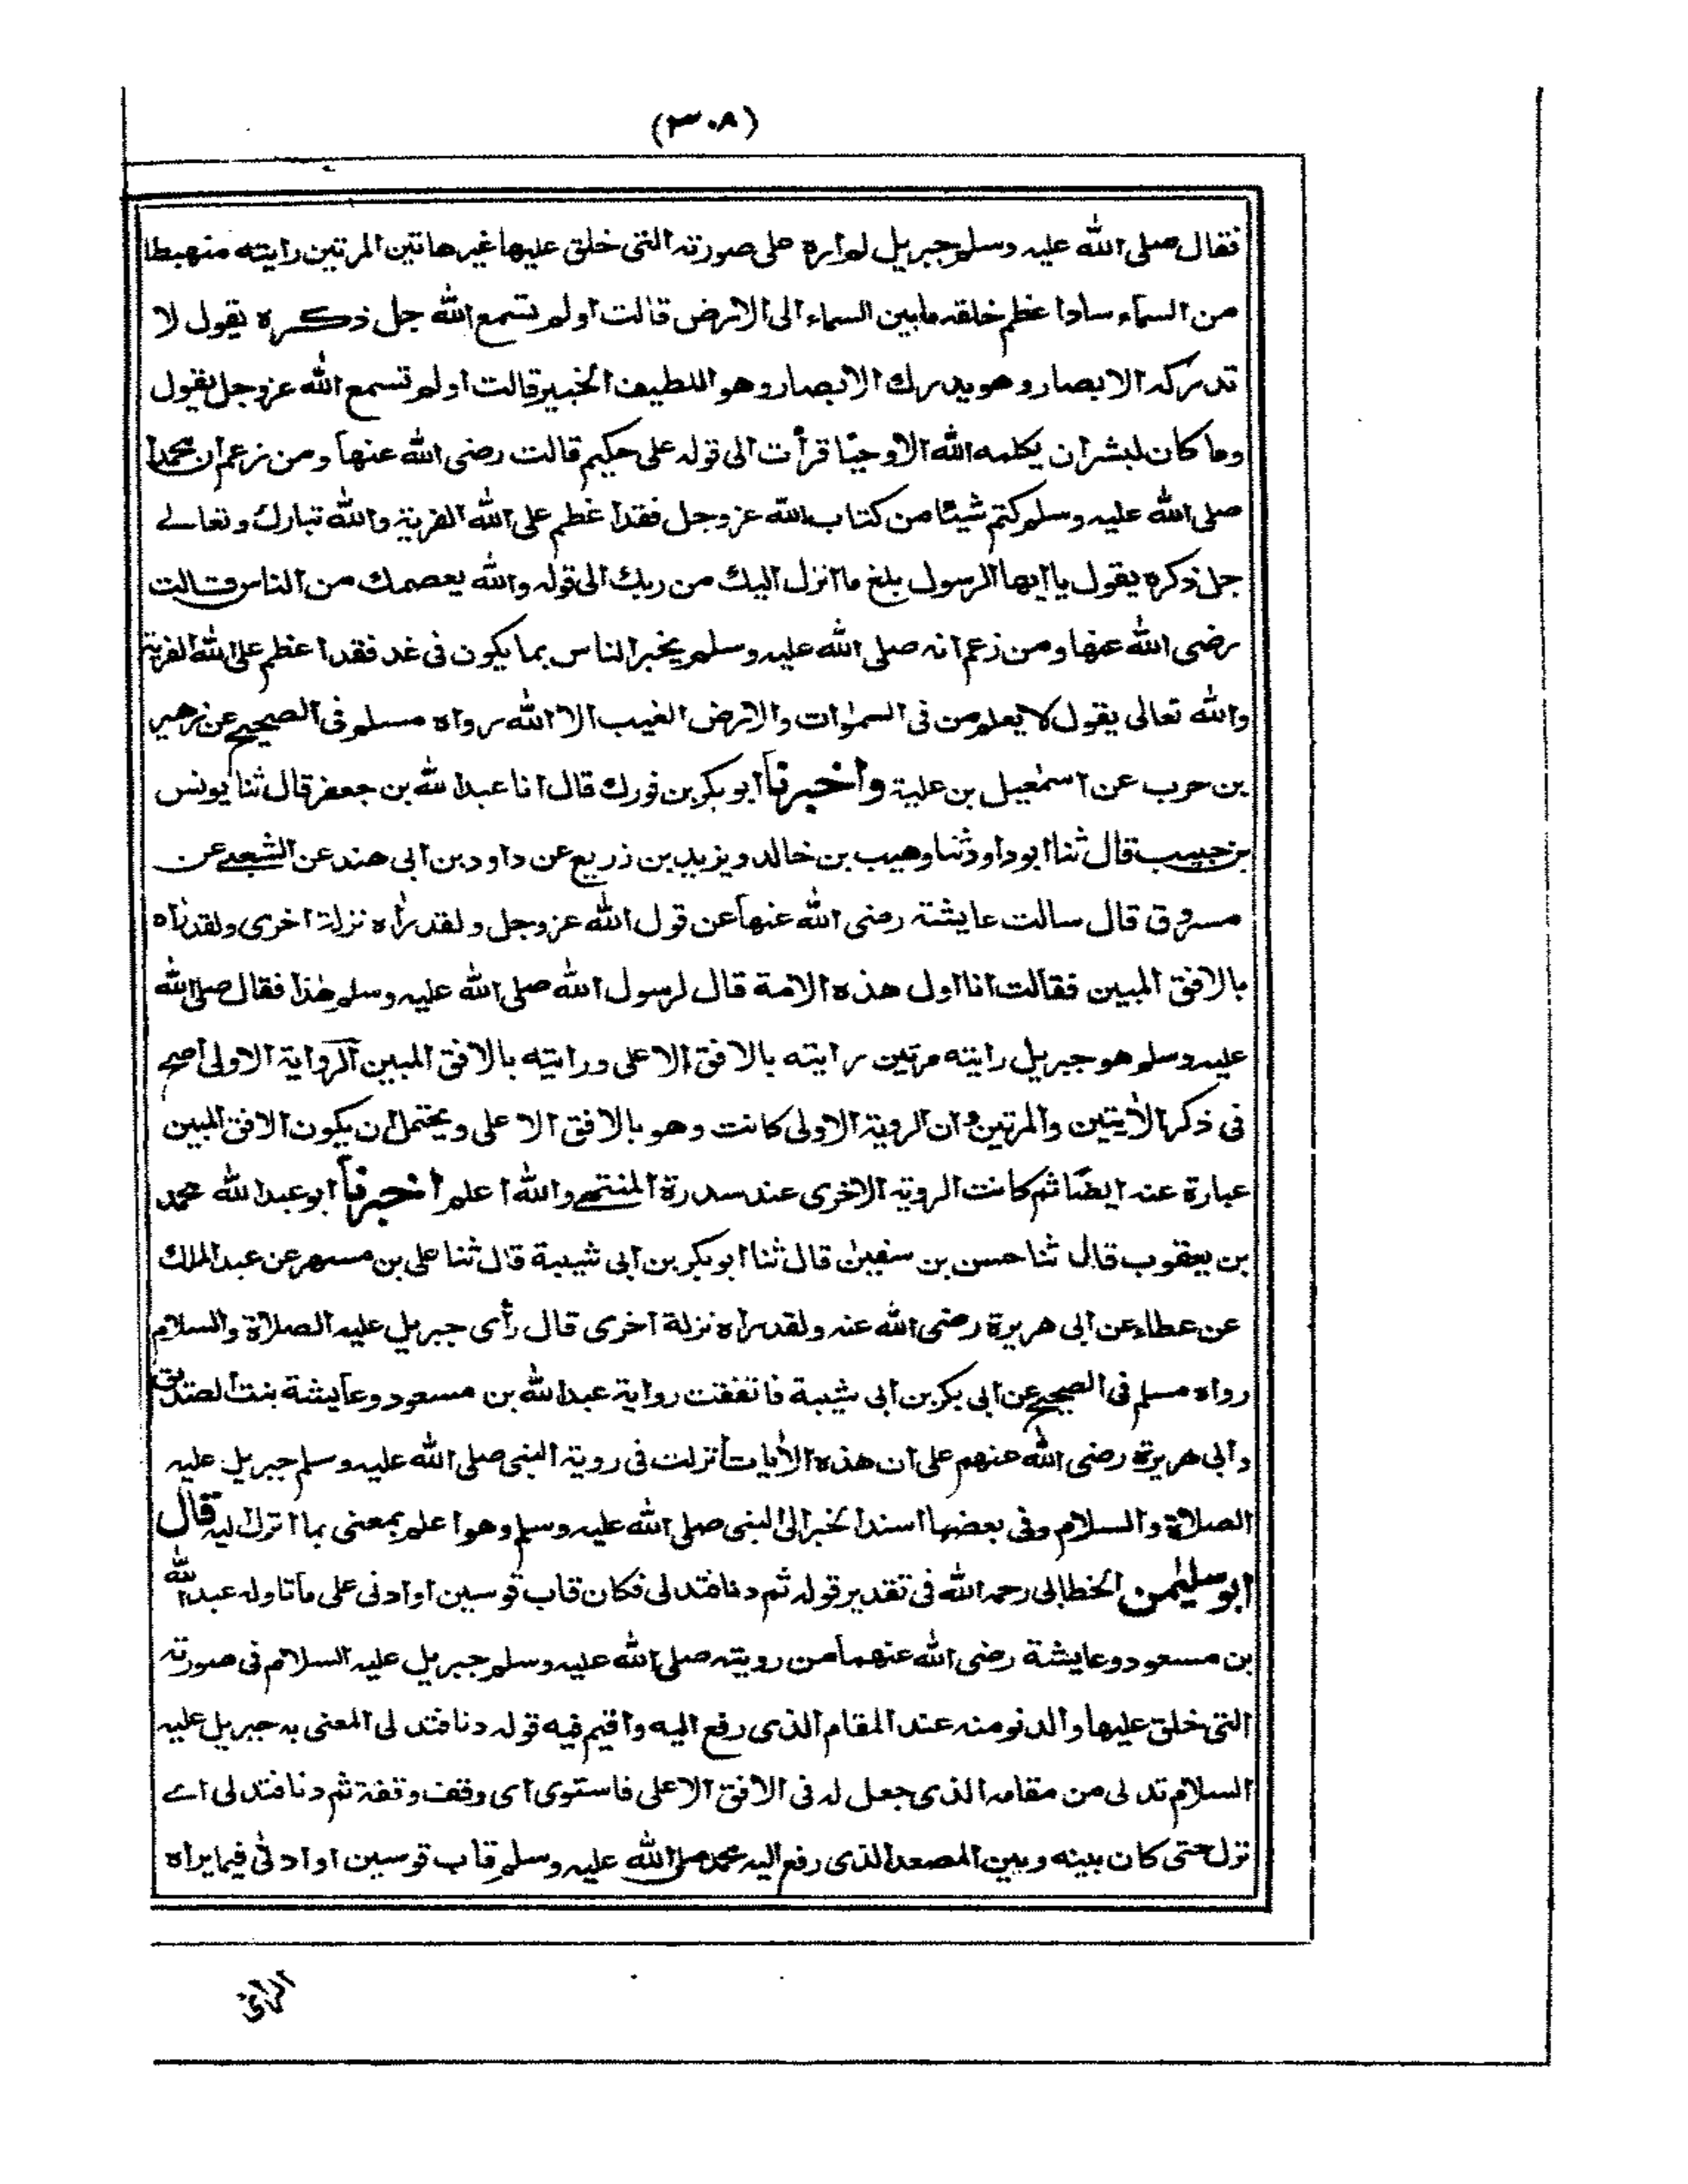 (٣٠٨)
فقال صلى الله عليه وسلم جبريل لم اره على صورته التى خلق عليها غير هاتين المرتين رايته منهبطا
من السماء سادا عظم خلقه ما بين السماء الى الارض قالت اولم تسمع الله جل ذكره يقول لا
تدركه الابصار وهو يدرك الابصار وهو اللطيف الخبير قالت اولم تسمع الله عز وجل يقول
وما كان لبشر ان يكلمه الله الا وحيًا قرأت الى قوله على حكيم قالت رضى الله عنها ومن زعم ان محمدا
صلى الله عليه وسلم كتم شيئا من كتاب الله عز وجل فقد اعظم على الله الفرية والله تبارك وتعالے
جل ذكره يقول يا ايها الرسول بلغ ما انزل اليك من ربك الى قوله والله يعصمك من الناس قالت
رضى الله عنها ومن زعم انه صلى الله عليه وسلم يخبر الناس بما يكون فى غد فقد اعظم على الله الفرية
والله تعالى يقول لا يعلم من فى السمٰوات والارض الغيب الا الله رواه مسلم فى الصحيح عن زهير
بن حرب عن اسمٰعيل بن علية واخبرنا ابو بكر بن فورك قال انا عبد الله بن جعفر قال ثنا يونس
بن حبيب قال ثنا ابو داود ثنا وهيب بن خالد ويزيد بن زريع عن داود بن ابى هند عن الشعبے عن
مسروق قال سالت عايشة رضى الله عنها عن قول الله عز وجل ولقد رأه نزلة اخرى ولقد رأه
بالافق المبين فقالت انا اول هذه الامة قال لرسول الله صلى الله عليه وسلم هٰذا فقال صلى الله
عليه وسلم هو جبريل رايته مرتين رايته بالافق الاعلى ورايته بالافق المبين الرواية الاولى اصح
فى ذكر الأيتين والمرتين وان الروية الاولى كانت وهو بالافق الاعلى ويحتمل ان يكون الافق المبين
عبارة عنه ايضًا ثم كانت الروية الاخرى عند سدرة المنتهے والله اعلم اخبرنا ابو عبد الله محمد
بن يعقوب قال ثنا حسن بن سفيٰن قال ثنا ابو بكر بن ابى شيبة قال ثنا على بن مسهر عن عبد الملك
عن عطاء عن ابى هريرة رضى الله عنه ولقد راه نزلة اخرى قال رأى جبريل عليه الصلاة والسلام
رواه مسلم فى الصحيح عن ابى بكر بن ابى شيبة فاتفقت رواية عبد الله بن مسعود وعايشة بنت الصديق
وابى هريرة رضى الله عنهم على ان هذه الأيات أنزلت فى روية النبى صلى الله عليه وسلم جبريل عليه
الصلاة والسلام وفى بعضها اسند الخبر الى النبى صلى الله عليه وسلم وهو اعلم بمعنى بما انزل اليه قال
ابو سليمٰن الخطابى رحمه الله فى تقدير قوله ثم دنا فتدلى فكان قاب قوسين او ادنى على ما تاوله عبد الله
بن مسعود وعايشة رضى الله عنهما من رويته صلى الله عليه وسلم جبريل عليه السلام فى صورته
التى خلق عليها والدنو منه عند المقام الذى رفع اليه واقيم فيه قوله دنا فتدلى المعنى به جبريل عليه
السلام تدلى من مقامه الذى جعل له فى الافق الاعلى فاستوى اى وقف وقفة ثم دنا فتدلى اے
نزل حتى كان بينه وبين المصعد الذى رفع اليه محمد صلى الله عليه وسلم قاب قوسين او ادنٰى فيما يراه
الرائى